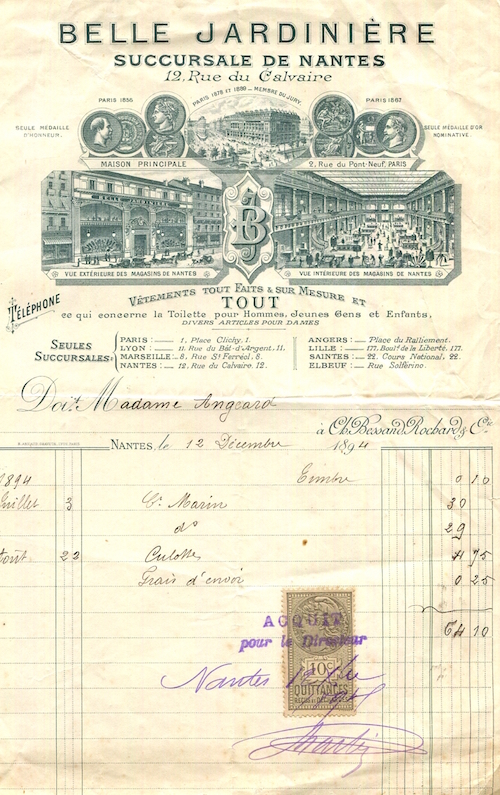 BELLE JARDINIÈRE
SUCCURSALE DE NANTES
12, Rue du Calvaire
PARIS 1855
PARIS 1878 ET 1889 _ MEMBRE DU JURY
PARIS 1867
SEULE MÉDAILLE D'HONNEUR.
SEULE MÉDAILLE D'OR NOMINATIVE.
MAISON PRINCIPALE
2, Rue du Pont-Neuf, PARIS
BJ
VUE EXTÉRIEURE DES MAGASINS DE NANTES
VUE INTÉRIEURE DES MAGASINS DE NANTES
TÉLÉPHONE
VÊTEMENTS TOUT FAITS & SUR MESURE ET
TOUT
ce qui concerne la Toilette pour Hommes, Jeunes Gens et Enfants,
DIVERS ARTICLES POUR DAMES
SEULES SUCCURSALES:
PARIS: 1, Place Clichy, 1.
LYON: 11, Rue du Bât-d'Argent, 11.
MARSEILLE: 8, Rue St Ferréol, 8.
NANTES: 12, Rue du Calvaire, 12.
ANGERS: Place du Ralliement.
LILLE: 177, Bould de la Liberté, 177.
SAINTES: 22, Cours National, 22.
ELBEUF: Rue Solferino.
Doit Madame Angeard
à Ch. Bessand, Rochard & Cie
NANTES, le 12 Décembre 1894
1894 Timbre 0 10
Juillet 3 Cs Marin 30
do 29
Août 22 Culottes 4 75
Frais d'envoi 0 25
64 10
ACQUIT
pour le Directeur
10c
QUITTANCES
Nantes